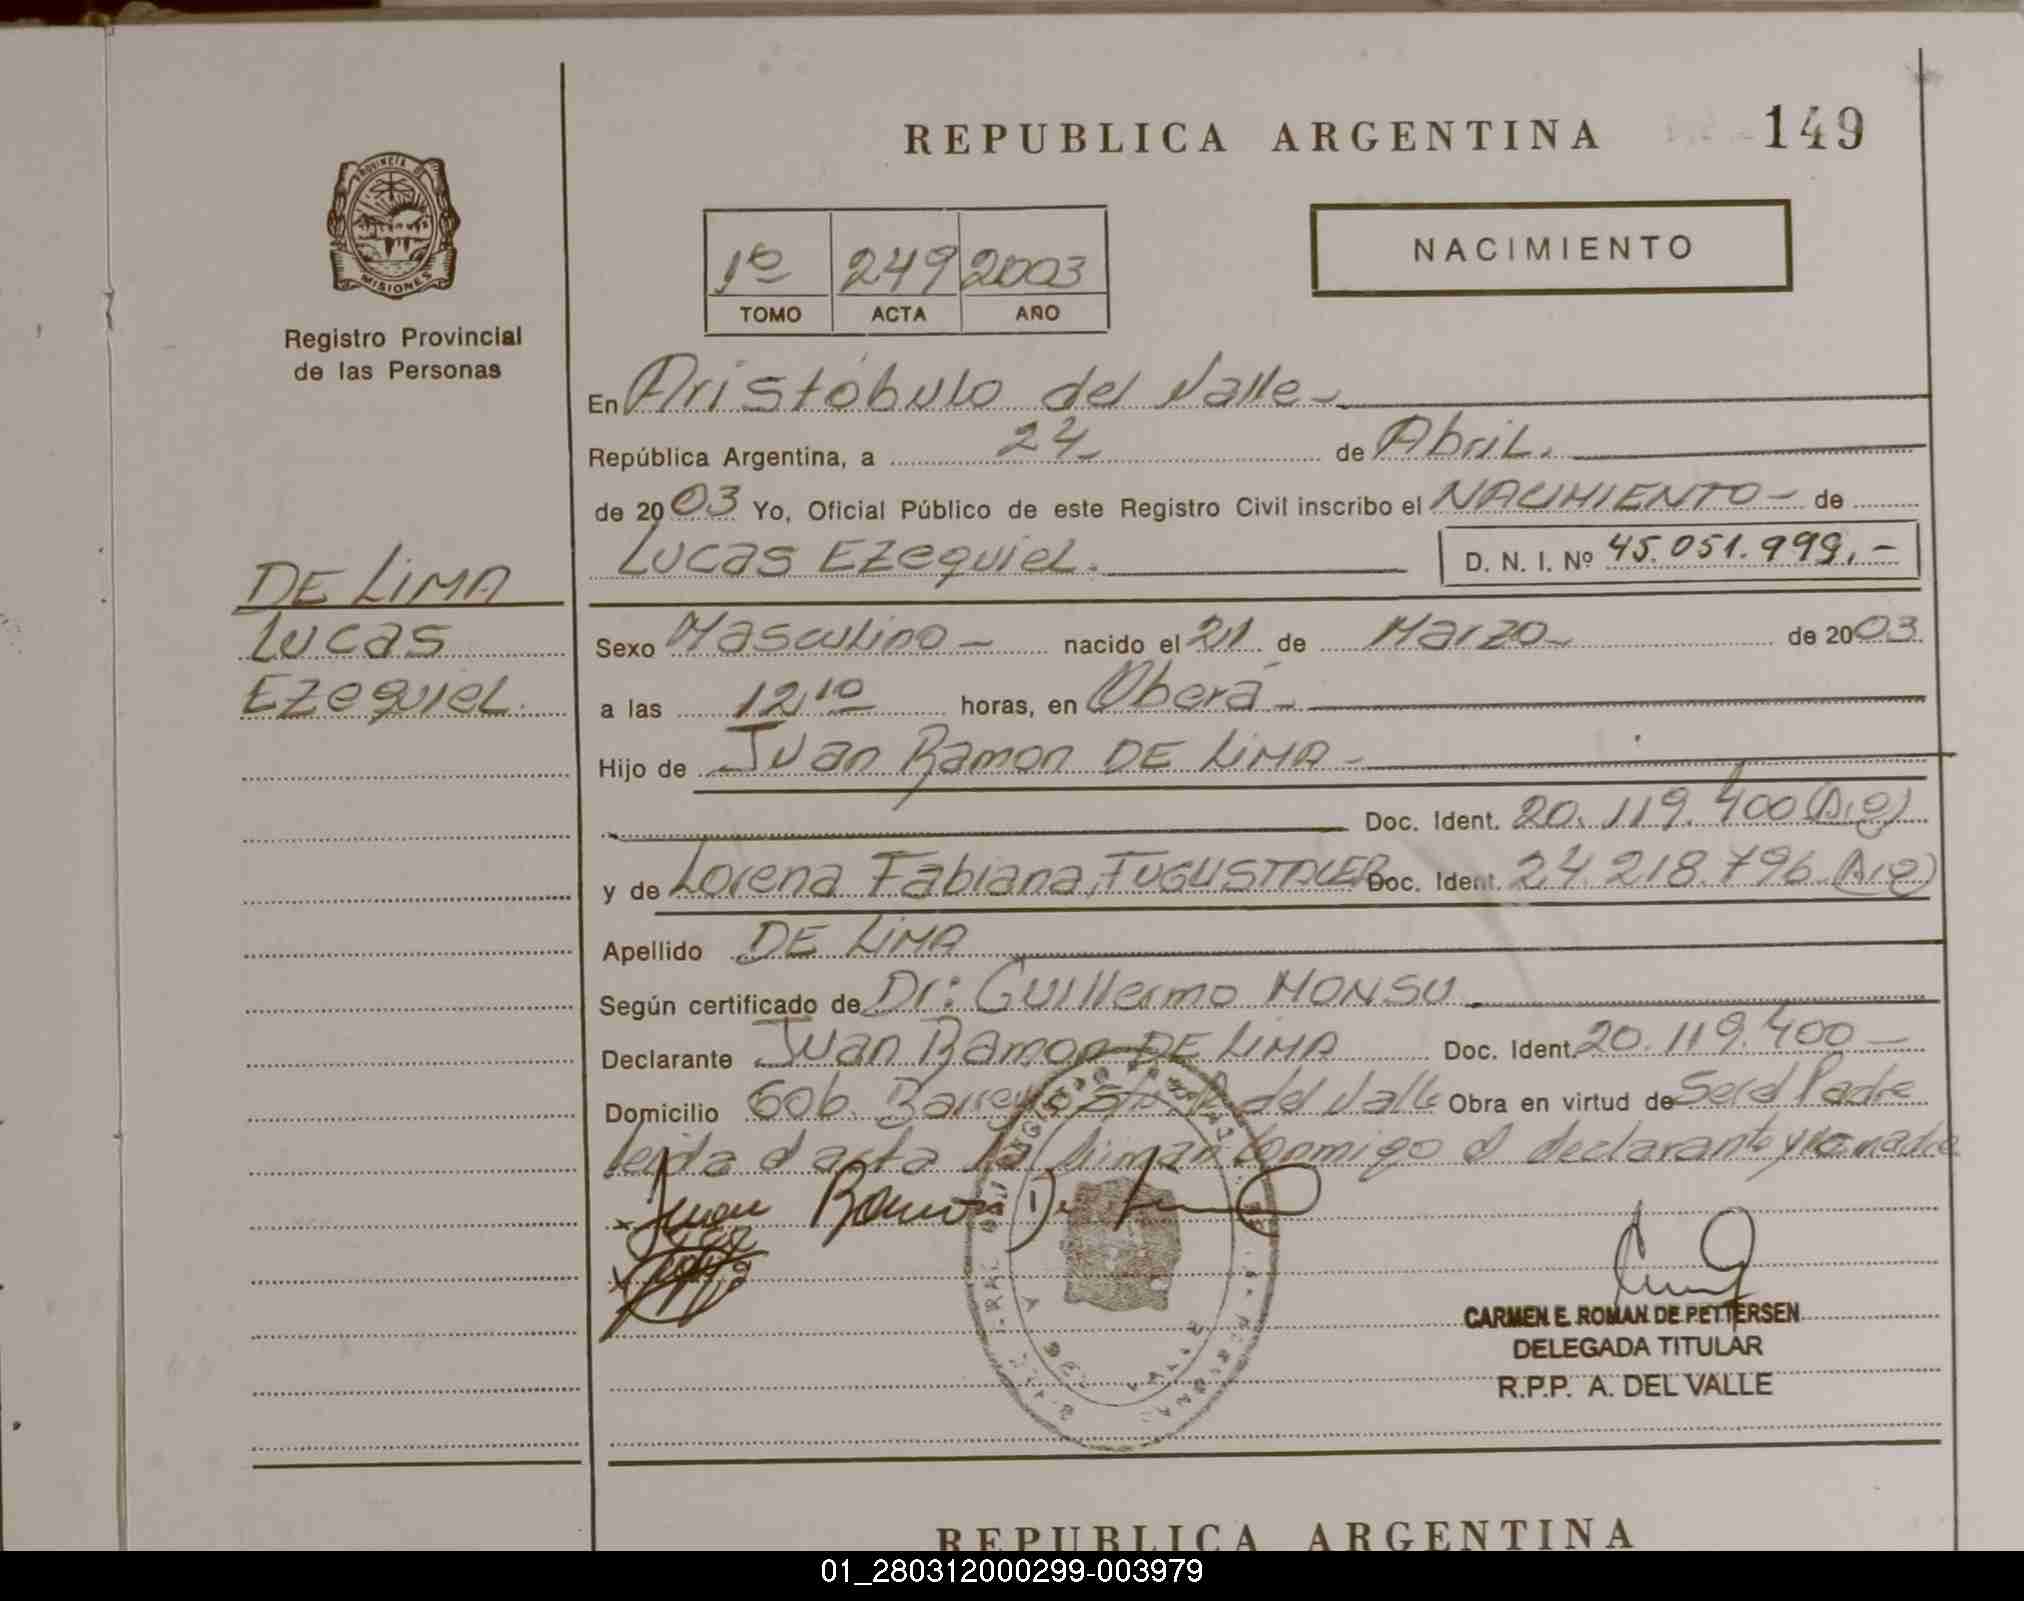 REPUBLICA ARGENTINA 149
PROVINCIA DE
MISIONES
Registro Provincial
de las Personas
1º 249 2003
TOMO ACTA AÑO
NACIMIENTO
En Aristóbulo del Valle-
República Argentina, a 24 de Abril.
de 2003 Yo, Oficial Público de este Registro Civil inscribo el NACIMIENTO - de
Lucas Ezequiel. D. N. I. Nº 45.051.999,-
DE LIMA
Lucas
Ezequiel.
Sexo Masculino - nacido el 21 de Marzo- de 2003
a las 12,10 horas, en Oberá -
Hijo de Juan Ramon DE LIMA -
Doc. Ident. 20.119.400 (Arg)
y de Lorena Fabiana, Doc. Ident. 24.218.796 (Arg)
Apellido DE LIMA
Según certificado de Dr: Guillermo MONSU
Declarante Juan Ramon DE LIMA Doc. Ident. 20.119.400 -
Domicilio Gob. del Valle Obra en virtud de Ser el Padre
leida el acta la firman conmigo el declarante y la madre
Juan Ramon De Lima
CARMEN E. ROMAN DE PETTERSEN
DELEGADA TITULAR
R.P.P. A. DEL VALLE
REPUBLICA ARGENTINA
01_280312000299-003979